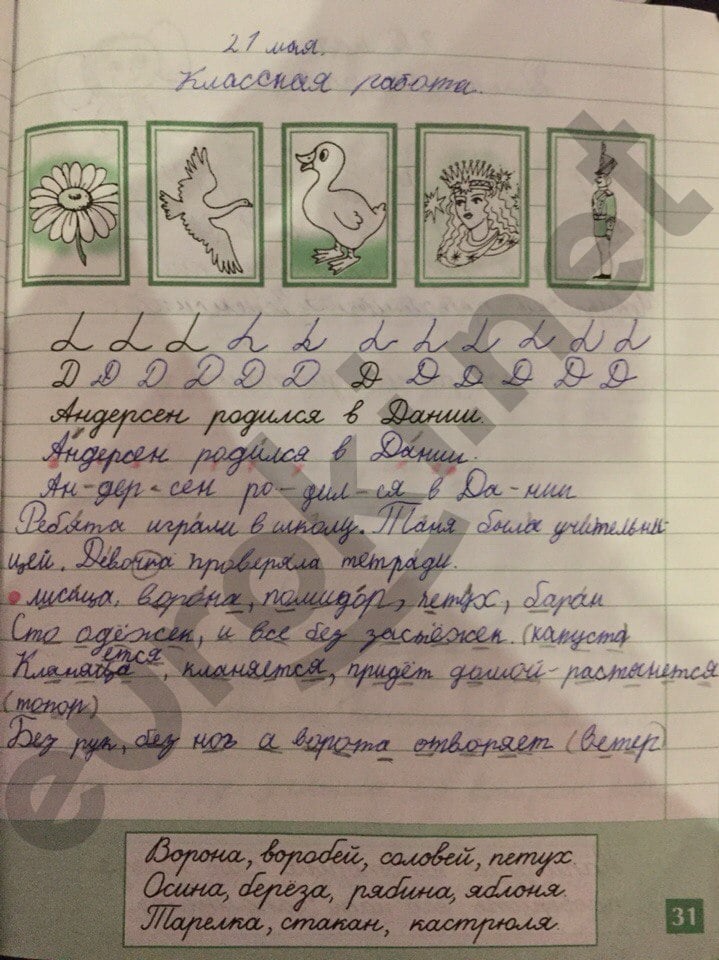 21 мая.
Классная работа.
L L L L L L L L L L L
D D D D D D D D D D D D
Андерсен родился в Дании.
Андерсен родился в Дании.
Ан-дер-сен ро-дил-ся в Да-нии
Ребята играли в школу. Таня была учительни-
цей. Девочка проверяла тетради.
лисица, ворона, помидор, петух, баран
Сто одёжек, и все без застёжек. (капуста)
ется
Кланяца, кланяется, придёт домой-растянется
(топор)
Без рук, без ног а ворота отворяет (ветер)
Ворона, воробей, соловей, петух.
Осина, берёза, рябина, яблоня.
Тарелка, стакан, кастрюля.
31
eurokinet